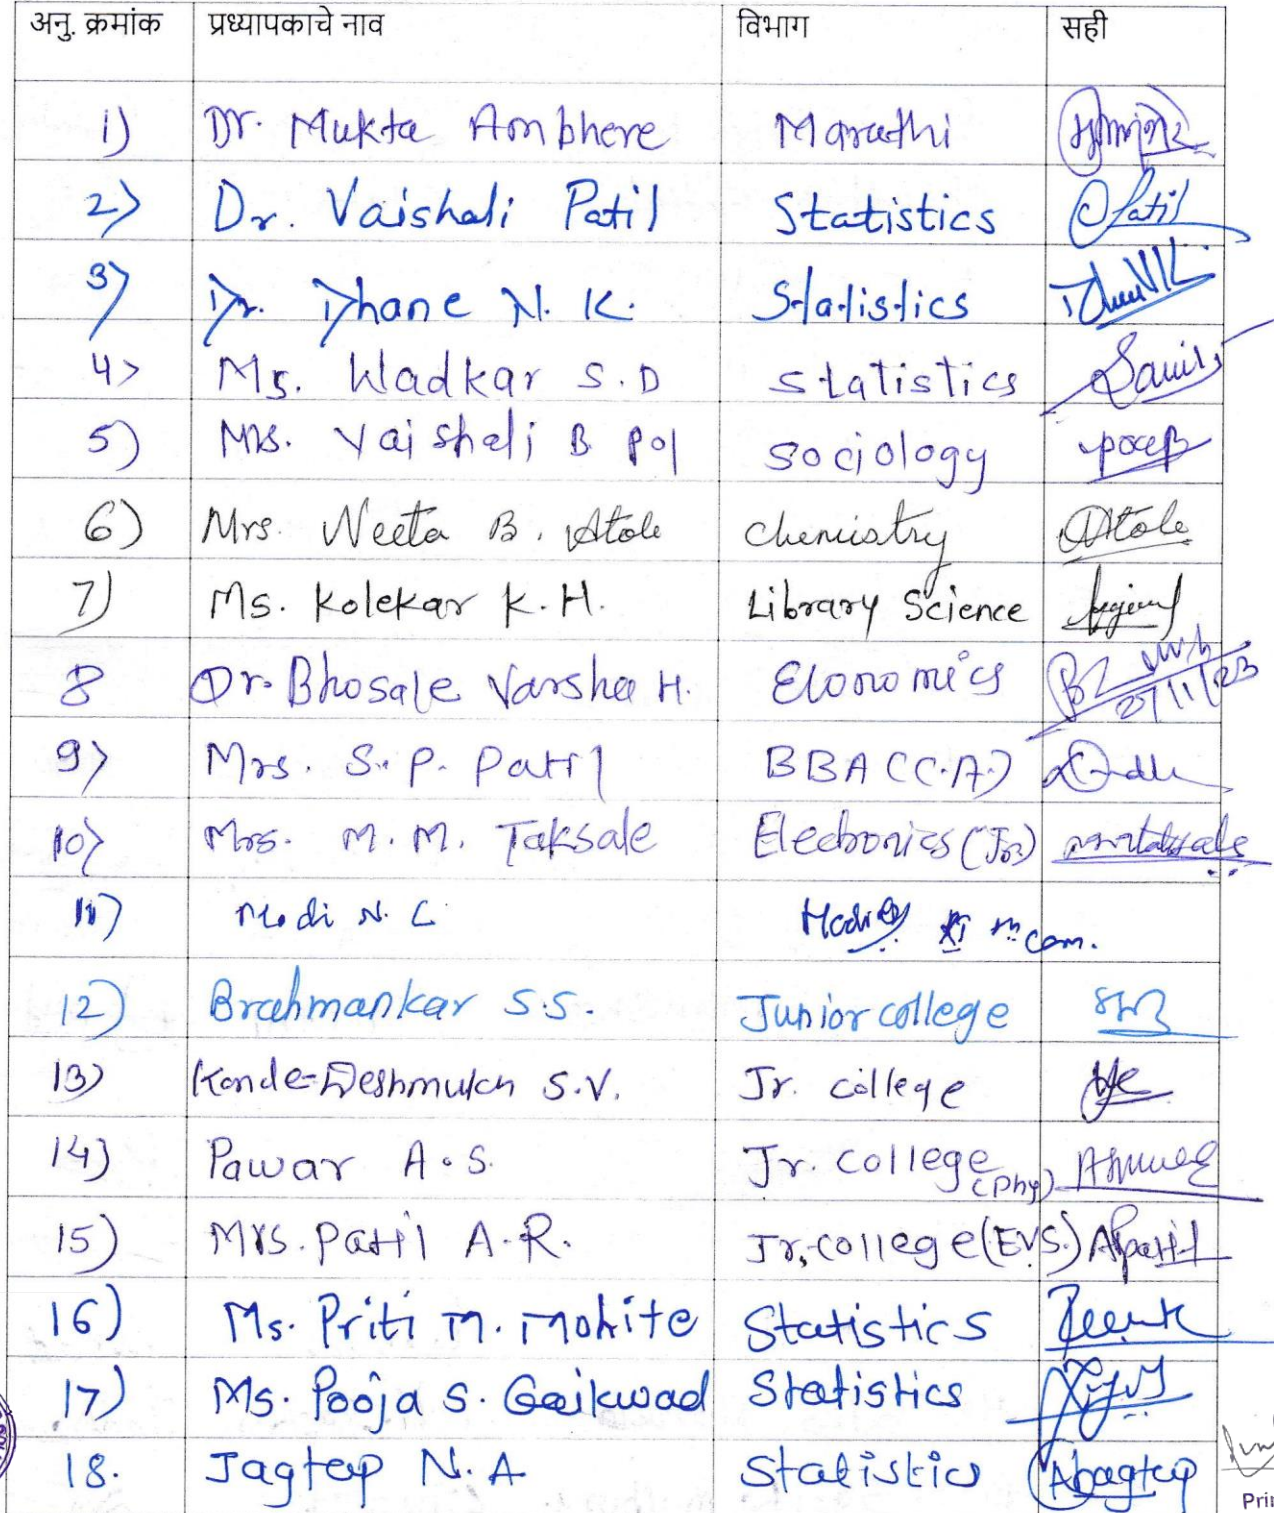 अनु. क्रमांक प्रध्यापकाचे नाव विभाग सही
1) Dr. Mukta Ambhere Marathi
2) Dr. Vaishali Patil Statistics Patil
3) Dr. Dhane N. K. Statistics
4) Ms. Wadkar S.D Statistics
5) Mrs. Vaishali B Pol Sociology
6) Mrs. Neeta B. Atole Chemistry Atole
7) Ms. Kolekar K.H. Library Science
8 Dr. Bhosale Varsha H. Economics 27/11/23
9) Mrs. S. P. Patil BBA (C.A.)
10) Mrs. M. M. Taksale Electronics (Jr.)
11) Modi N. C com.
12) Brahmankar S.S. Junior college
13) Konde-Deshmukh S.V. Jr. college
14) Pawar A.S. Jr. College (Phy)
15) Mrs. Patil A.R. Jr. college (EVS.) Apatil
16) Ms. Priti M. Mohite Statistics
17) Ms. Pooja S. Gaikwad Statistics
18. Jagtap N.A Statistics
Prin